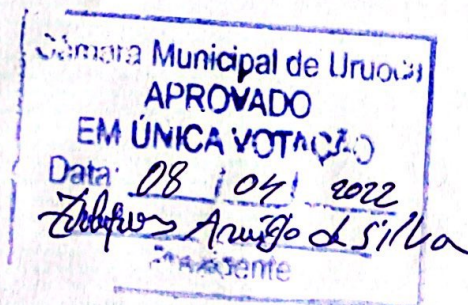 Câmara Municipal de Uruoca
APROVADO
EM ÚNICA VOTAÇÃO
Data: 08 / 04 / 2022
Araújo da Silva
Presidente